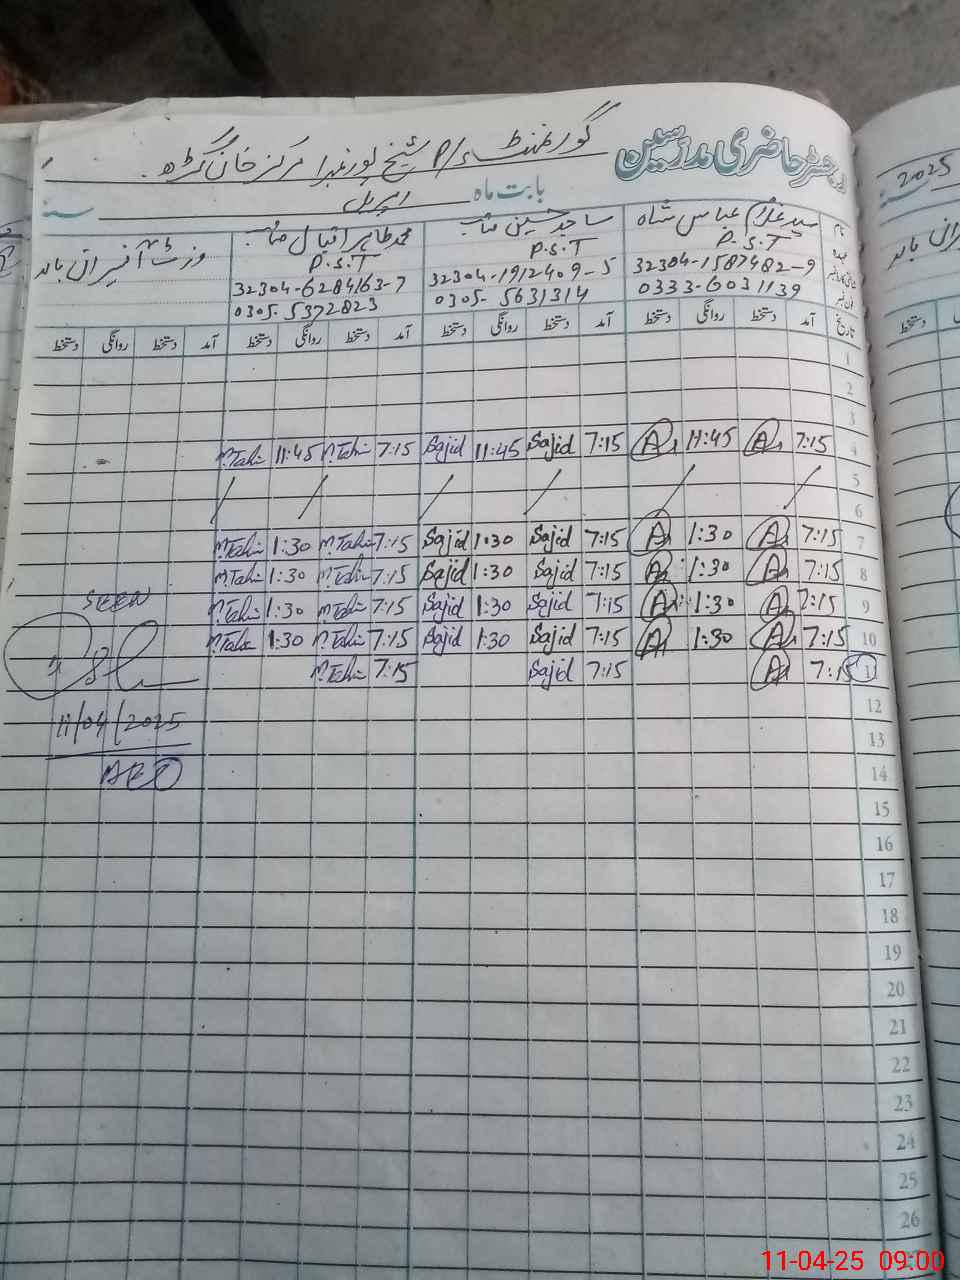 رجسٹر حاضری مدرسین گورنمنٹ P/S شیخ پور نمبر1 مرکز خان گڑھ
2025
بابت ماہ اپریل سنہ
نام سید غلام عباس شاہ ساجد حسین صاحب محمد طاہر اقبال صاحب وزٹ آفیسران بالا
عہدہ P.S.T P.S.T P.S.T
شناختی کارڈ نمبر 32304-1587482-9 32304-1912409-5 32304-6284163-7
فون نمبر 0333-6031139 0305-5631314 0305-5372823
تاریخ آمد دستخط روانگی دستخط آمد دستخط روانگی دستخط آمد دستخط روانگی دستخط آمد دستخط روانگی دستخط
دستخط
1
2
3
4 7:15 A 11:45 A 7:15 Sajid 11:45 Sajid 7:15 M.Tahir 11:45 M.Tahir
5
6
7 7:15 A 1:30 A 7:15 Sajid 1:30 Sajid 7:15 M.Tahir 1:30 M.Tahir
8 7:15 A 1:30 A 7:15 Sajid 1:30 Sajid 7:15 M.Tahir 1:30 M.Tahir
9 7:15 A 1:30 A 7:15 Sajid 1:30 Sajid 7:15 M.Tahir 1:30 M.Tahir
10 7:15 A 1:30 A 7:15 Sajid 1:30 Sajid 7:15 M.Tahir 1:30 M.Tahir
11 7:15 A 7:15 Sajid 7:15 M.Tahir
SEEN
11/04/2025
AEO
12
13
14
15
16
17
18
19
20
21
22
23
24
25
26
11-04-25 09:00